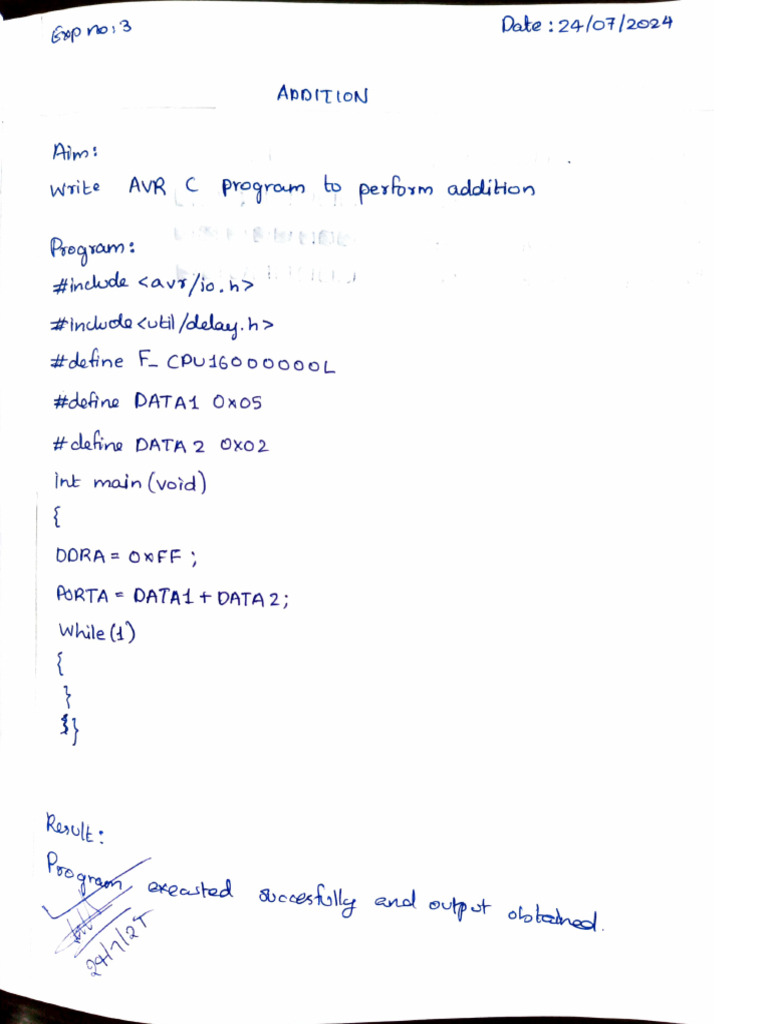 Exp no: 3
Date: 24/07/2024
ADDITION
Aim:
Write AVR C program to perform addition
Program:
#include <avr/io.h>
#include<util/delay.h>
#define F_CPU16000000L
#define DATA1 0x05
#define DATA2 0x02
int main(void)
{
DDRA = 0xFF;
PORTA = DATA1 + DATA2;
While(1)
{
}
}
Result:
Program executed succesfully and output obtained.
24/7/24